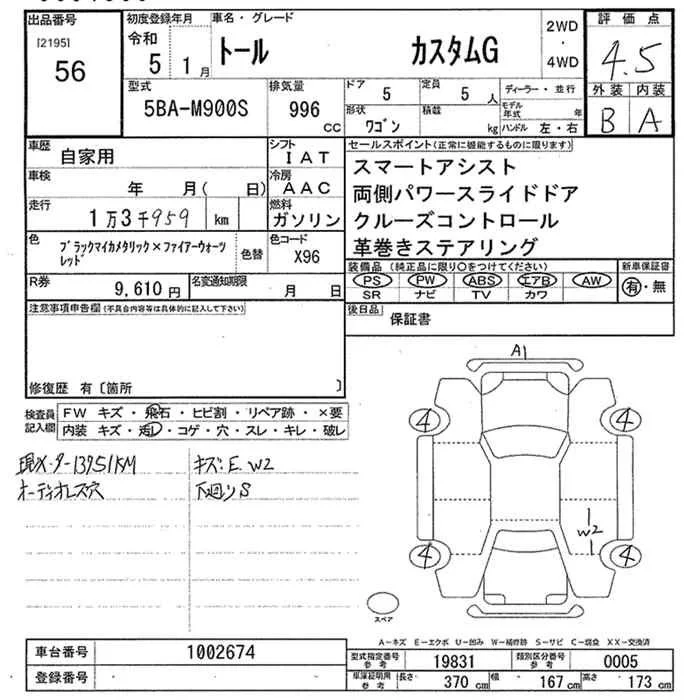 出品番号
[2195]
56
初度登録年月
令和
5 1月
車名・グレード
トール カスタムG
2WD
・
4WD
評価点
4.5
外装 内装
B A
型式
5BA-M900S
排気量
996
cc
ドア
5
定員
5 人
形状
ワゴン
積載
kg
ディーラー・並行
モデル年式 年
ハンドル 左・右
車歴
自家用
シフト
IAT
車検
年 月( 日)
冷房
AAC
走行
1万3千959 km
燃料
ガソリン
色
ブラックマイカメタリック×ファイアークォーツレッド
色替
色コード
X96
R券
9,610 円
名変通知期限
月 日
セールスポイント(正常に機能するものに限ります)
スマートアシスト
両側パワースライドドア
クルーズコントロール
革巻きステアリング
装備品 (純正品に限り○をつけてください)
PS PW ABS エアB AW
SR ナビ TV カワ
新車保証書
有・無
後日品
保証書
注意事項申告欄(不具合内容等は具体的に記入して下さい)
修復歴 有〔箇所 〕
検査員記入欄
FW キズ・飛石・ヒビ割・リペア跡・×要
内装 キズ・汚レ・コゲ・穴・スレ・キレ・破レ
現メーター13951KM
オーディオレス穴
キズ:E.W2
下廻りS
A1
4
4
4
4
W2
スペア
A-キズ E-エクボ U-凹み W-補修跡 S-サビ C-腐食 XX-交換済
車台番号
1002674
登録番号
型式指定番号
参考
19831
類別区分番号
参考
0005
車庫証明用
参考
長さ 370 cm 幅 167 cm 高さ 173 cm